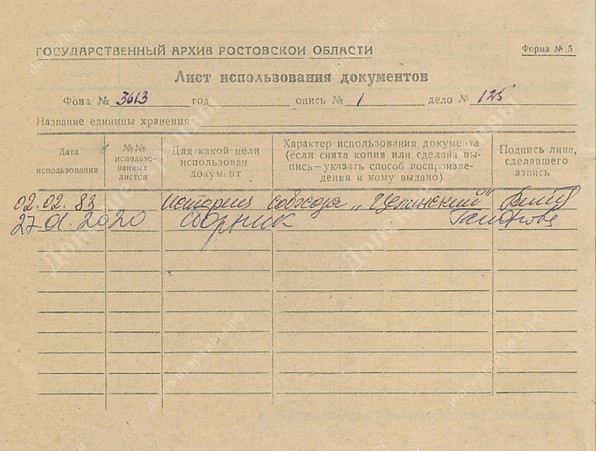 ГОСУДАРСТВЕННЫЙ АРХИВ РОСТОВСКОЙ ОБЛАСТИ
Форма № 5
Лист использования документов
Фонд № 3613 год опись № 1 дело № 125
Название единицы хранения
Дата использования
№№ использо-
ванных
листов
Для какой цели
использован
документ
Характер использования документа
(если снята копия или сделана вы-
пись—указать способ воспроизве-
дения и кому выдано)
Подпись лица,
сделавшего
запись
02.02.83 История совхоза „Целинский"
27.01.2020 сборник